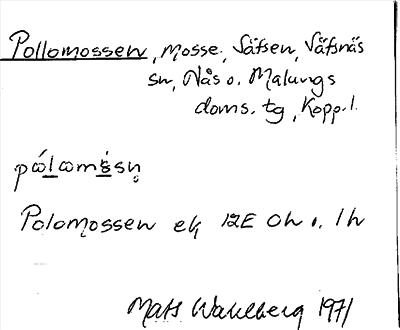 Pollomossen, mosse, Säfsen, Säfsnäs
sn, Nås o. Malungs
doms. tg, Kopp. l.
Polomossen ek 12E 0h o. 1h
Mats Wahlberg 1971